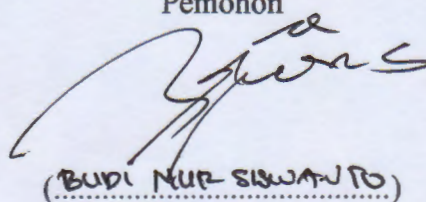 Pemohon
(BUDI NUR SISWANTO)